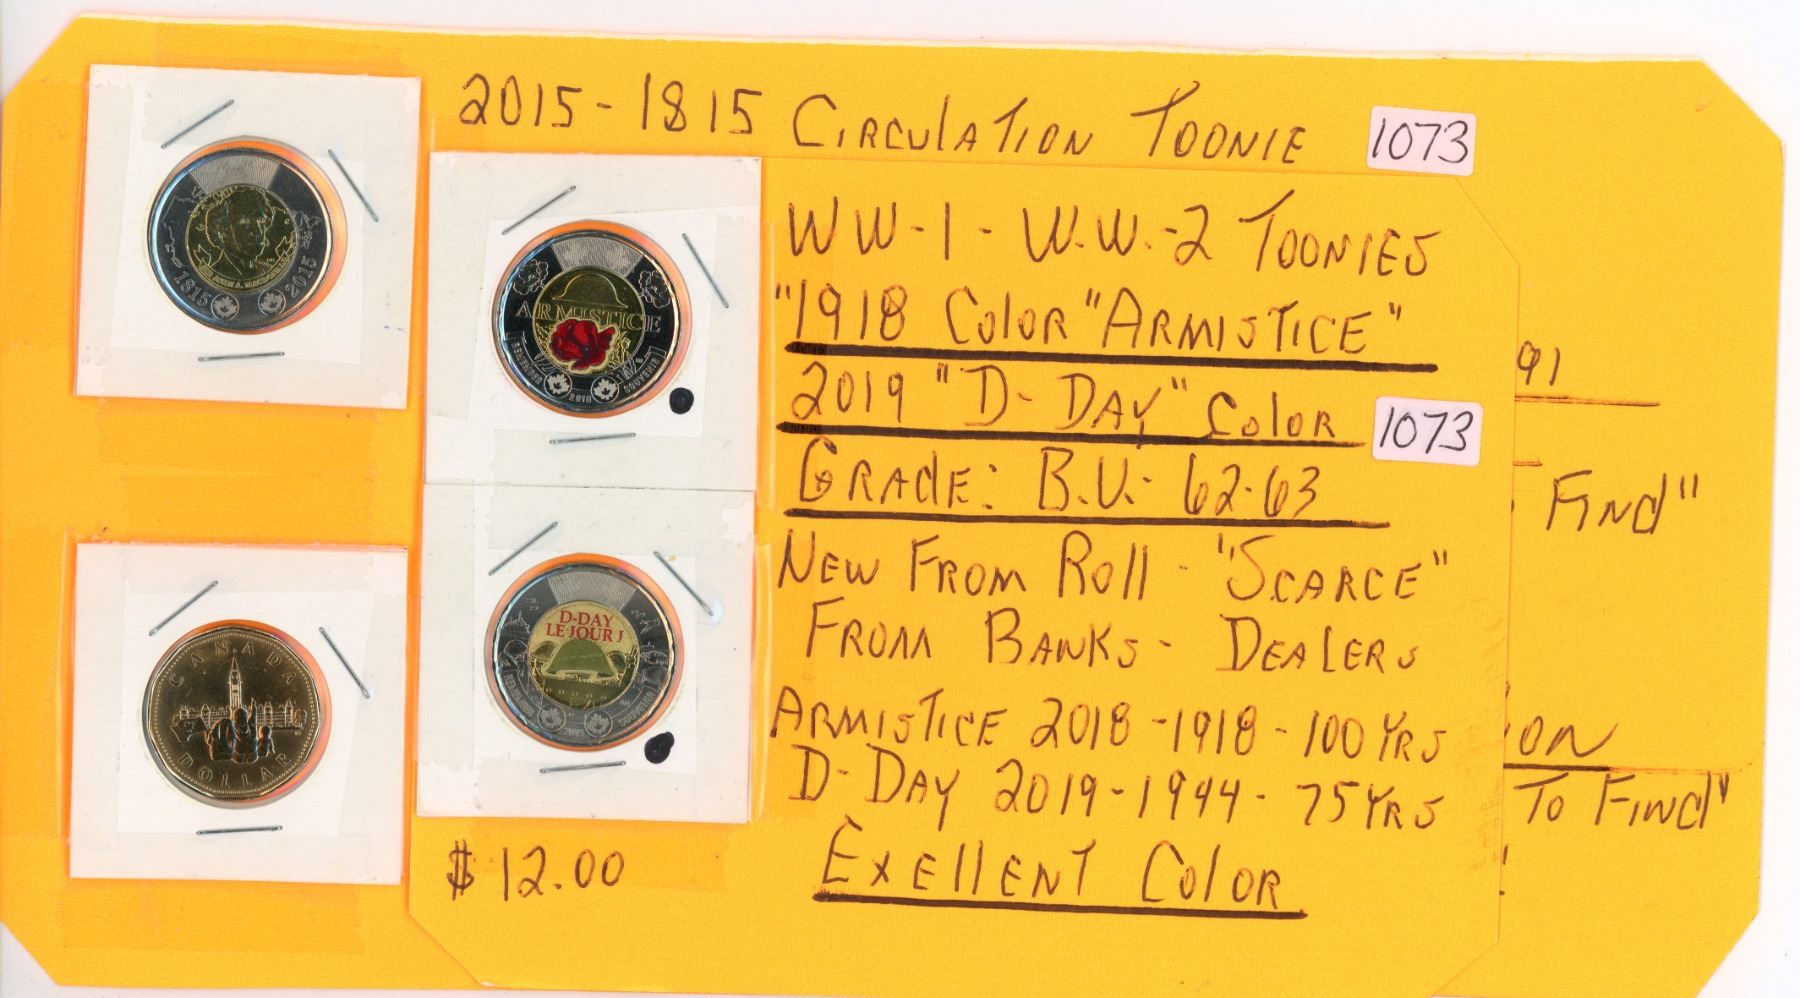 2015-1815 CIRCULATION TOONIE 1073
WW-1 - W.W.-2 TOONIES
"1918 COLOR "ARMISTICE"
2019 "D-DAY" COLOR 1073
GRADE: B.U.- 62-63
NEW FROM ROLL - "SCARCE"
FROM BANKS - DEALERS
ARMISTICE 2018-1918-100 YRS
D-DAY 2019-1944-75 YRS
EXELLENT COLOR
$12.00
91
FIND"
ION
TO FIND"
1815 2015
ARMISTICE
REMEMBER SOUVENIR
2018
D-DAY
LE JOUR J
REMEMBER SOUVENIR
CANADA
DOLLAR